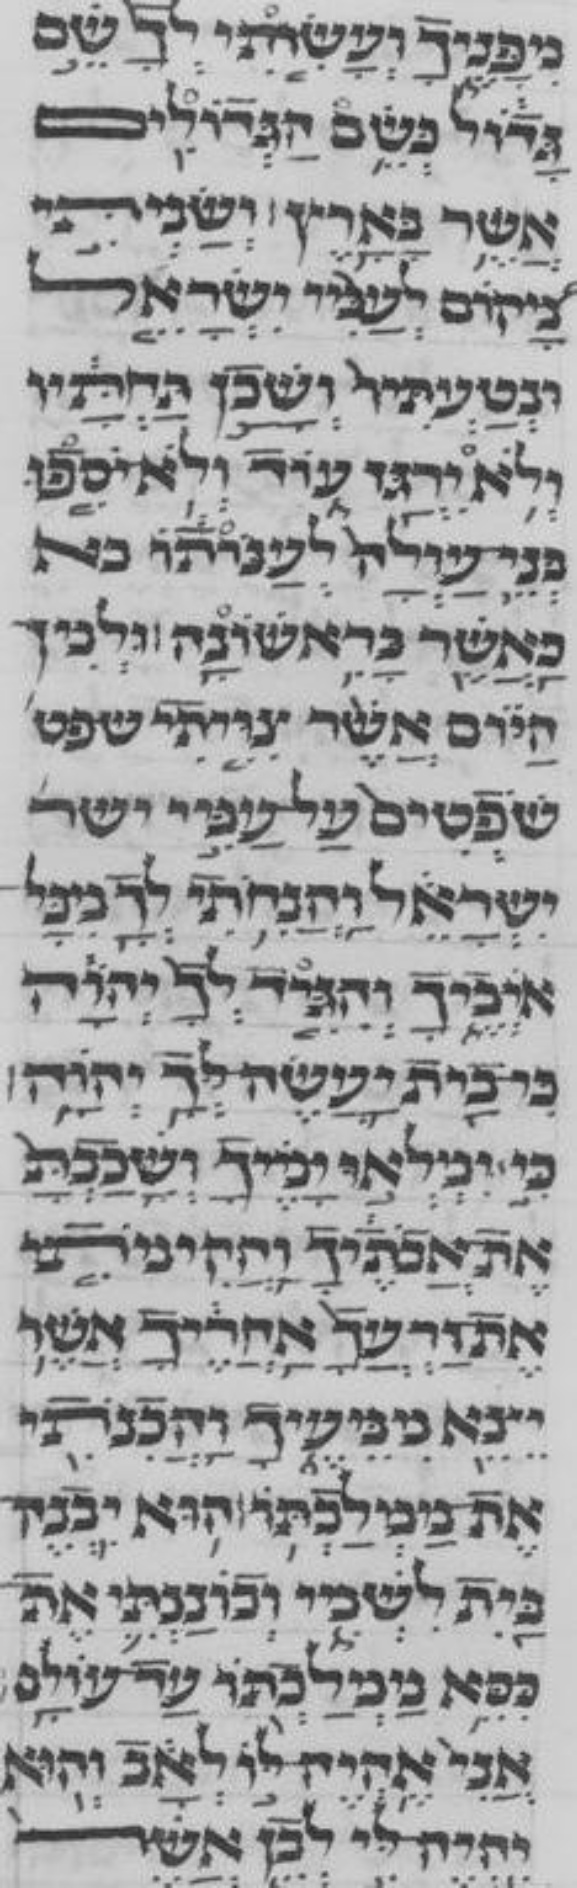 מִפָּנֶיךָ וְעָשִׂיתִי לְךָ שֵׁם
גָּדוֹל כְּשֵׁם הַגְּדוֹלִים
אֲשֶׁר בָּאָרֶץ׃ וְשַׂמְתִּי
מָקוֹם לְעַמִּי יִשְׂרָאֵל
וּנְטַעְתִּיו וְשָׁכַן תַּחְתָּיו
וְלֹא יִרְגַּז עוֹד וְלֹא יֹסִפוּ
בְנֵי עַוְלָה לְעַנּוֹתוֹ כא
כַּאֲשֶׁר בָּרִאשׁוֹנָה׃ וּלְמִן
הַיּוֹם אֲשֶׁר צִוִּיתִי שפט
שֹׁפְטִים עַל עַמִּי ישר
יִשְׂרָאֵל וַהֲנִחֹתִי לְךָ מִכָּל
אֹיְבֶיךָ וְהִגִּיד לְךָ יְהוָה
כִּי בַיִת יַעֲשֶׂה לְּךָ יְהוָה׃
כִּי יִמְלְאוּ יָמֶיךָ וְשָׁכַבְתָּ
אֶת אֲבֹתֶיךָ וַהֲקִימֹתִי
אֶת זַרְעֲךָ אַחֲרֶיךָ אֲשֶׁר
יֵצֵא מִמֵּעֶיךָ וַהֲכִנֹתִי
אֶת מַמְלַכְתּוֹ׃ הוּא יִבְנֶה
בַּיִת לִשְׁמִי וְכוֹנַנְתִּי אֶת
כִּסֵּא מַמְלַכְתּוֹ עַד עוֹלָם׃
אֲנִי אֶהְיֶה לּוֹ לְאָב וְהוּא
יִהְיֶה לִּי לְבֵן אֲשֶׁר